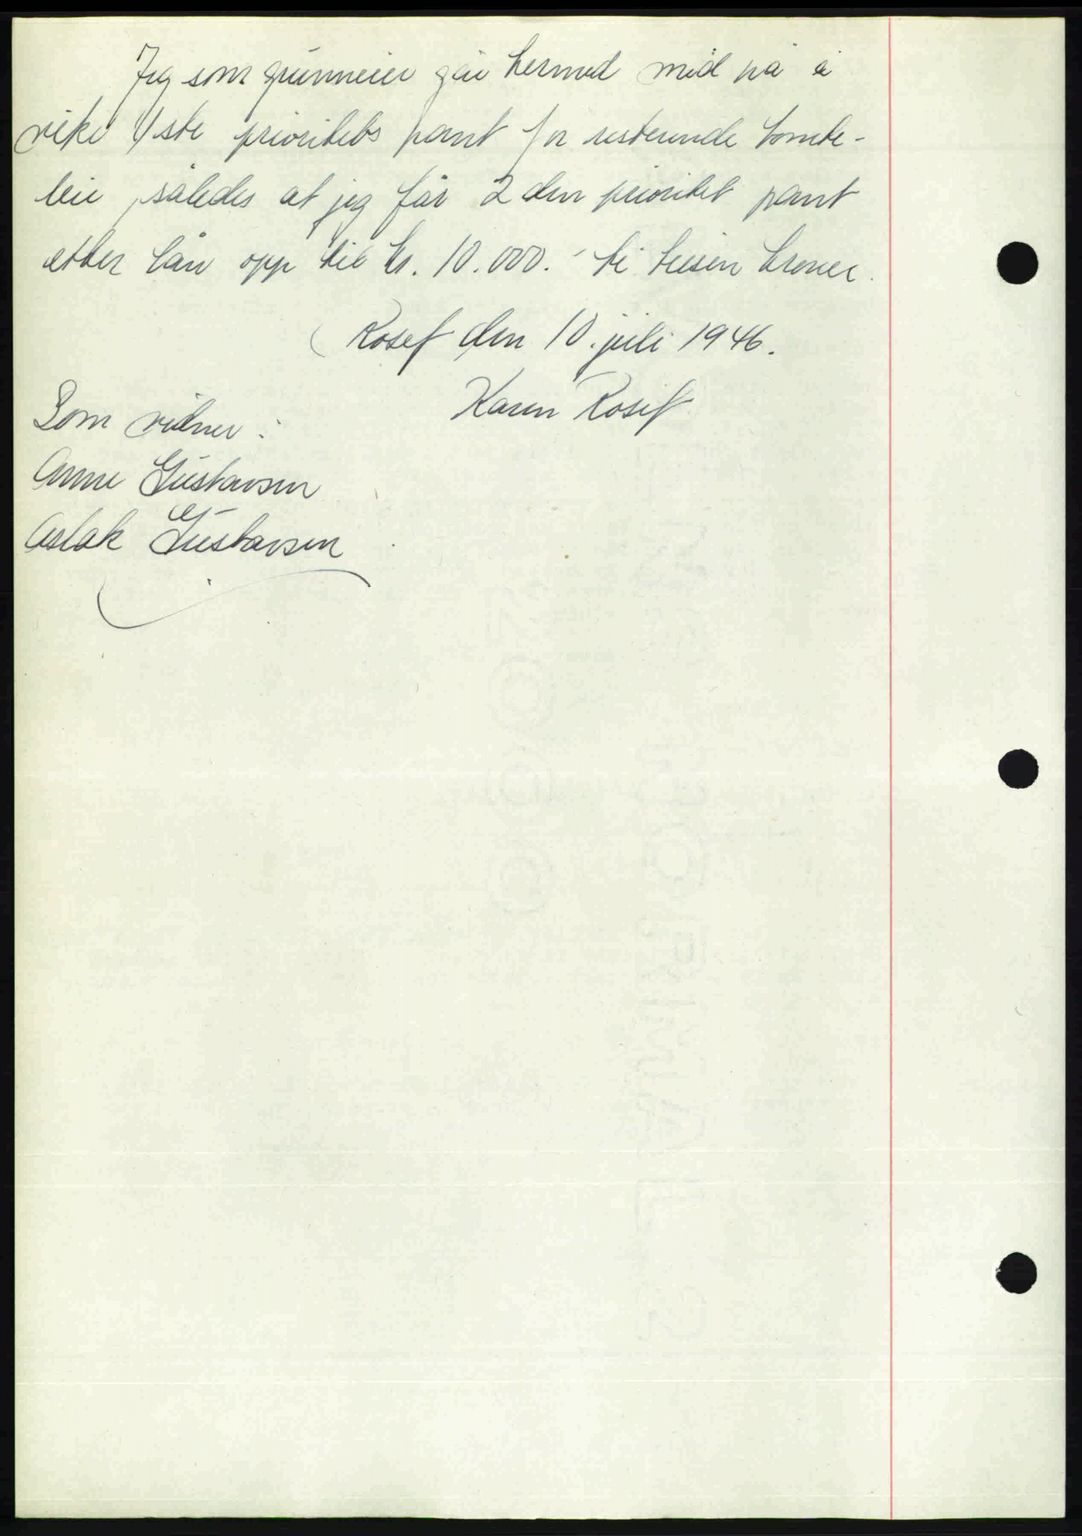 Jeg som grunneier går hermed med på å
vike 1ste prioritets pant for resterende tomte-
leie, således at jeg får 2den prioritet pant
etter lån opp til kr. 10.000.- ti tusen kroner.
Rosef den 10. juli 1946.
Karen Rosef
Som vidner:
Anne Gustavsen
Aslak Gustavsen